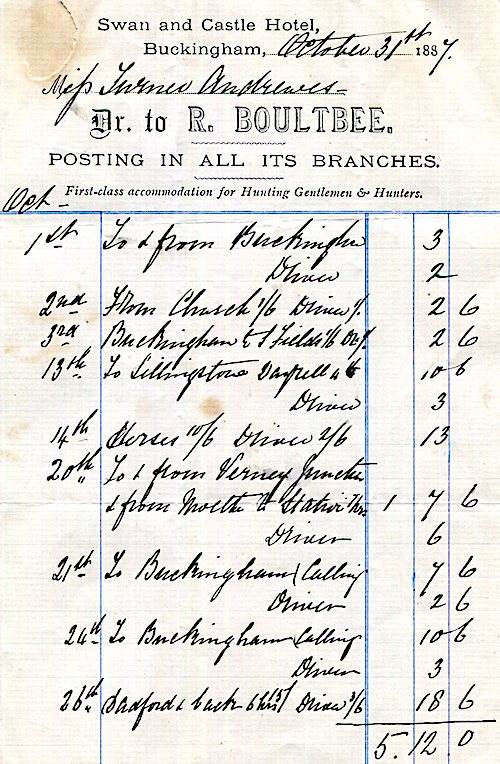 Swan and Castle Hotel,
Buckingham, October 31st 1887.
Miss Turner Andrewes
Dr. to R. BOULTBEE.
POSTING IN ALL ITS BRANCHES.
First-class accommodation for Hunting Gentlemen & Hunters.
Oct
1st To & from Buckingham 3
Driver 2
2nd From Church 1/6 Driver 1/. 2 6
3rd Buckingham to 1/6 2 6
13th To Lillingstone Dayrell 10 6
Driver 3
14th Horses 10/6 Driver 2/6 13
20th To & from Verney Junction
& from to Station 1 7 6
Driver 6
21st To Buckingham (Calling 7 6
Driver 2 6
24th To Buckingham (Calling 10 6
Driver 3
26th Radford & back 6 hrs 15/ Driver 3/6 18 6
5. 12. 0